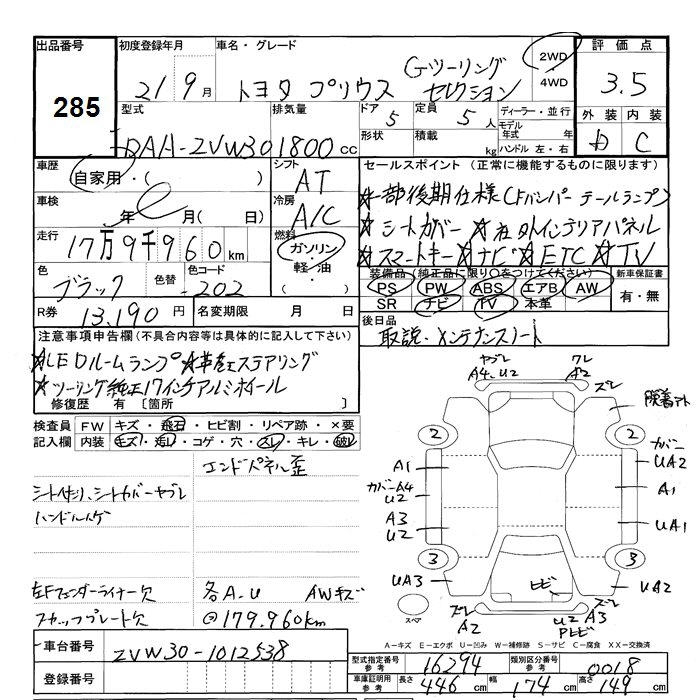 出品番号 初度登録年月 車名・グレード 2WD 4WD 評価点
285
21 9月 トヨタ プリウス Gツーリング セレクション 3.5
型式 排気量 ドア 5 定員 5人 ディーラー・並行 外装 内装
DAA-ZVW30 1800cc 形状 積載 kg モデル年式 年 ハンドル 左・右 C
車歴 シフト セールスポイント (正常に機能するものに限ります)
自家用・( ) AT
☆一部後期仕様(Fバンパーテールランプ)
車検 年 月(日) 冷房 A/C
☆シートカバー ☆社外インテリアパネル
走行 17万9千960km 燃料 ガソリン・軽油・( )
☆スマートキー☆ナビ☆ETC☆TV
色 ブラック 色替 色コード 202
装備品(純正品に限り〇をつけてください) 新車保証書
PS PW ABS エアB AW 有・無
SR ナビ TV 本革
R券 13,190円 名変期限 月 日
後日品 取説・メンテナンスノート
注意事項申告欄(不具合内容等は具体的に記入して下さい)
☆LEDルームランプ ☆革巻ステアリング
☆ツーリング純正17インチアルミホイール
修復歴 有[箇所 ]
検査員記入欄 FW キズ・飛石・ヒビ割・リペア跡・×要
内装 キズ・汚レ・コゲ・穴・スレ・キレ・破レ
エンドパネル歪
シート付リ、シートカバーヤブレ
ハンドルハゲ
左Fフェンダーライナー欠 各A.U AWキズ
スカッフプレート欠 @179.960km
ヤブレ A4.U2 ワレ A2 ズレ
2 2
カバー UA2
A1 A1
カバーA4 U2
A3 U2 UA1
3 3
UA3 ヒビ UA2
スペア ズレ A2 U2 A3 ズレ
A-キズ E-エクボ U-凹み W-補修跡 S-サビ C-腐食 XX-交換済
車台番号 ZVW30-1012538
登録番号
型式指定番号 参考 16294 類別区分番号 参考 0018
車庫証明用 参考 長さ 446cm 幅 174cm 高さ 149cm